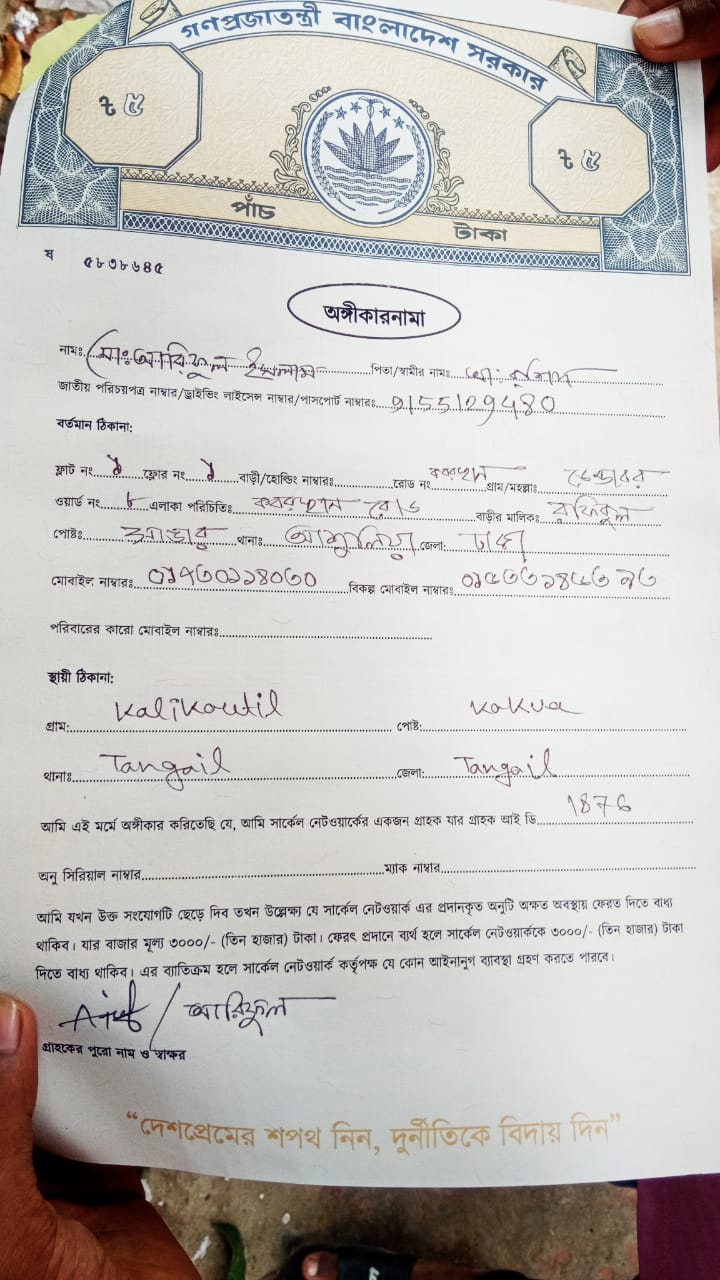 গণপ্রজাতন্ত্রী বাংলাদেশ সরকার
৳ ৫
৳ ৫
পাঁচ
টাকা
ষ ৫৮৩৮৬৪৫
অঙ্গীকারনামা
নামঃ মোঃ আরিফুল ইসলাম পিতা/স্বামীর নামঃ মো:
জাতীয় পরিচয়পত্র নাম্বার/ড্রাইভিং লাইসেন্স নাম্বার/পাসপোর্ট নাম্বারঃ 9155129480
বর্তমান ঠিকানা:
ফ্লাট নং ফ্লোর নং বাড়ী/হোল্ডিং নাম্বারঃ রোড নং কবরস্থান গ্রাম/মহল্লাঃ
ওয়ার্ড নং ৮ এলাকা পরিচিতিঃ কবরস্থান রোড বাড়ীর মালিকঃ রফিকুল
পোষ্টঃ থানাঃ আশুলিয়া জেলা: ঢাকা
মোবাইল নাম্বারঃ বিকল্প মোবাইল নাম্বারঃ
পরিবারের কারো মোবাইল নাম্বারঃ
স্থায়ী ঠিকানা:
গ্রাম: Kalikoutil পোষ্ট: Kakua
থানাঃ Tangail জেলা: Tangail
আমি এই মর্মে অঙ্গীকার করিতেছি যে, আমি সার্কেল নেটওয়ার্কের একজন গ্রাহক যার গ্রাহক আই ডি 1876
অনু সিরিয়াল নাম্বার ম্যাক নাম্বার
আমি যখন উক্ত সংযোগটি ছেড়ে দিব তখন উল্লেক্ষ্য যে সার্কেল নেটওয়ার্ক এর প্রদানকৃত অনুটি অক্ষত অবস্থায় ফেরত দিতে বাধ্য
থাকিব। যার বাজার মূল্য ৩০০০/- (তিন হাজার) টাকা। ফেরৎ প্রদানে ব্যর্থ হলে সার্কেল নেটওয়ার্ককে ৩০০০/- (তিন হাজার) টাকা
দিতে বাধ্য থাকিব। এর ব্যতিক্রম হলে সার্কেল নেটওয়ার্ক কর্তৃপক্ষ যে কোন আইনানুগ ব্যবস্থা গ্রহণ করতে পারবে।
আরিফুল
গ্রাহকের পুরো নাম ও স্বাক্ষর
“দেশপ্রেমের শপথ নিন, দুর্নীতিকে বিদায় দিন”